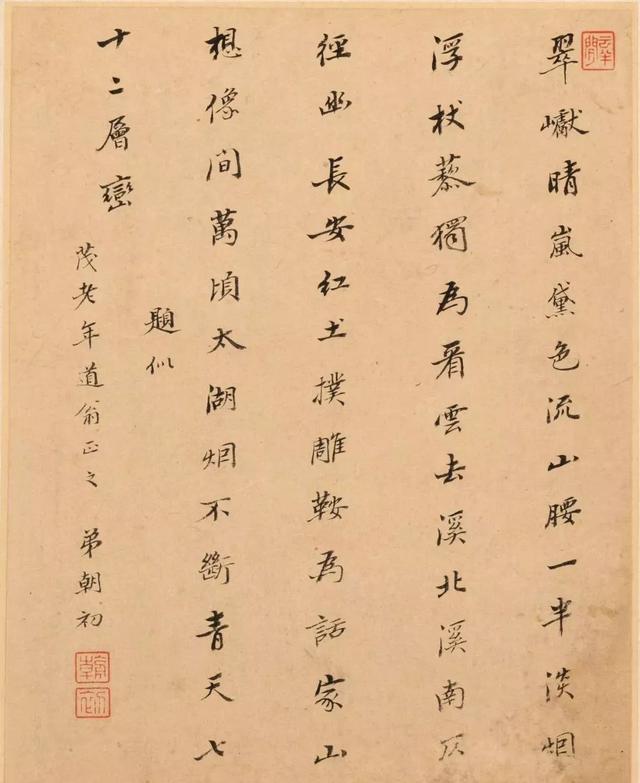 翠巘晴嵐黛色流山腰一半淡烟
浮杖藜獨為看雲去溪北溪南仄
徑幽長安紅土撲雕鞍為話家山
想像間萬頃太湖烟不斷青天七
十二層巒
題似
茂老年道翁正之 弟朝初